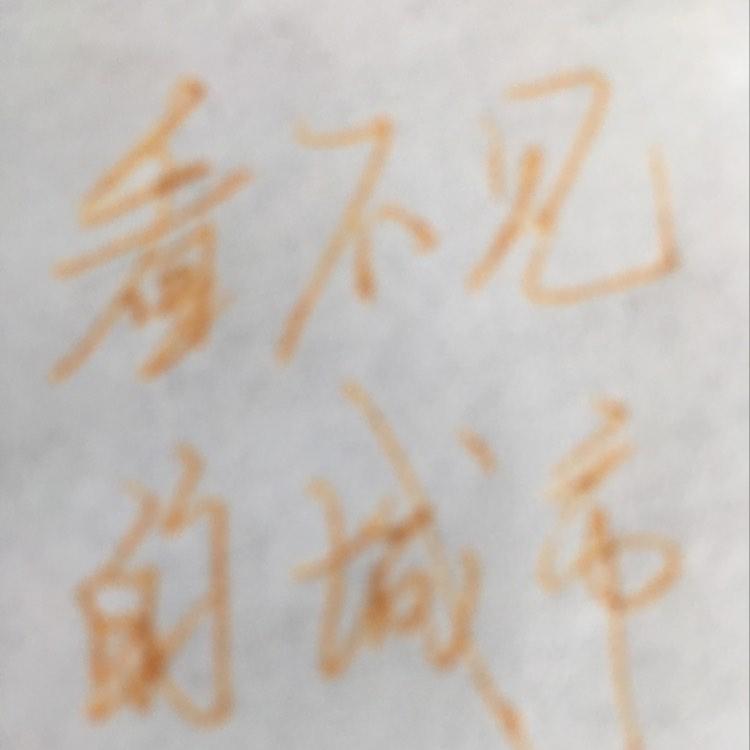 看不见
的城市